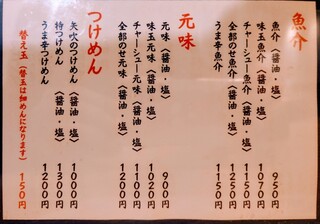 魚介
魚介〈醤油・塩〉 950円
味玉魚介〈醤油・塩〉 1070円
チャーシュー魚介〈醤油・塩〉 1150円
全部のせ魚介〈醤油・塩〉 1250円
うま辛魚介 1150円
元味
元味〈醤油・塩〉 900円
味玉元味〈醤油・塩〉 1020円
チャーシュー元味〈醤油・塩〉 1100円
全部のせ元味〈醤油・塩〉 1200円
つけめん
矢吹のつけめん〈醤油・塩〉 1000円
特つけめん〈醤油・塩〉 1300円
うま辛つけめん 1200円
替え玉（替玉は細めんになります） 150円